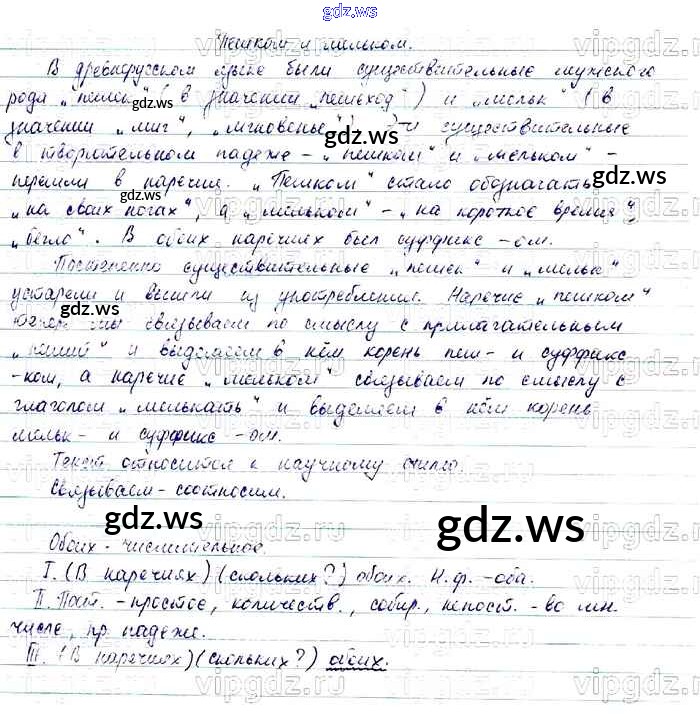 gdz.ws
Пешком и мельком.
В древнерусском языке были существительные мужского
рода „пешек" (в значении „пешеход") и „мельк" (в
значении „миг", „мгновенье"). и существительные
в творительном падеже - „пешком" и „мельком" -
перешли в наречия. „Пешком" стало обозначать
„на своих ногах", а „мельком" - „на короткое время",
„бегло". В обоих наречиях был суффикс -ом.
Постепенно существительные „пешек" и „мельк"
устарели и вышли из употребления. Наречие „пешком"
теперь мы связываем по смыслу с прилагательным
„пеший" и выделяем в нём корень пеш- и суффикс
-ком, а наречие „мельком" связываем по смыслу с
глаголом „мелькать" и выделяем в нём корень
мельк- и суффикс -ом.
Текст относится к научному стилю.
Связываем - соотносим.
Обоих - числительное.
I. (В наречиях) (скольких?) обоих. Н.ф. - оба.
II. Пост. - простое, количеств., собир., непост. - во мн.
числе, пр. падеже.
III. (В наречиях) (скольких?) обоих.
gdz.ws
gdz.ws
gdz.ws
gdz.ws
gdz.ws
gdz.ws
gdz.ws
vipgdz.ru